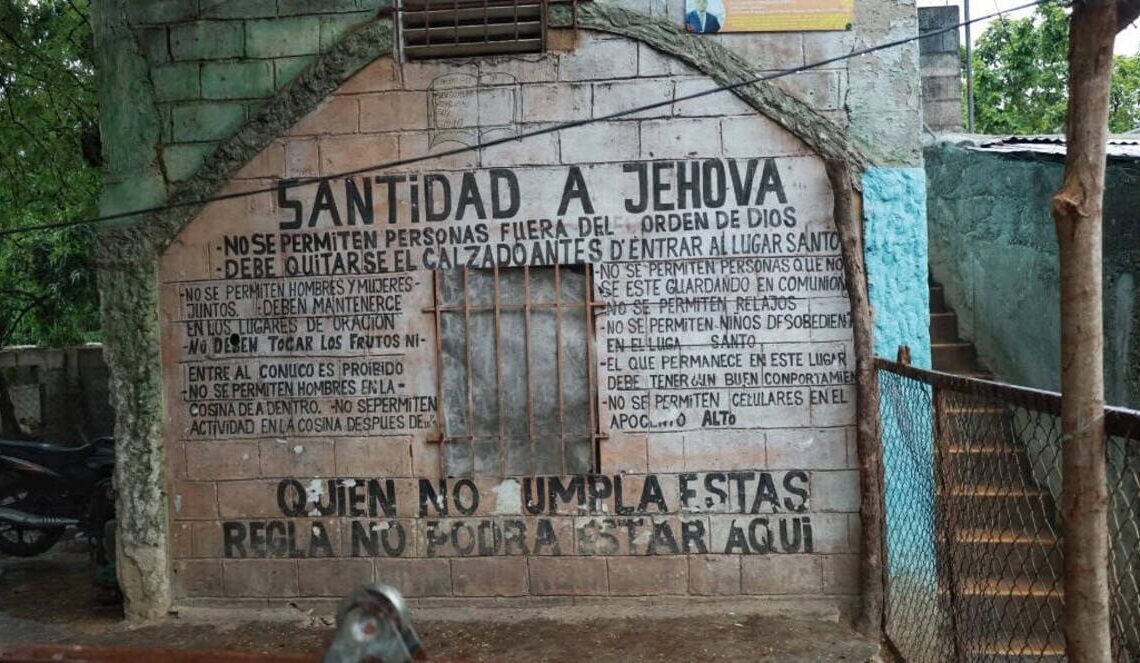 SANTiDAD A JEHOVA
-NO SE PERMITEN PERSONAS FUERA DEL ORDEN DE DIOS
-DEBE QUITARSE EL CALZADO ANTES D'ENTRAR AL LUGAR SANTO
-NO SE PERMITEN HOMBRES Y MUJERES-
JUNTOS. -DEBEN MANTENERCE
EN LOS LUGARES DE ORACION
-NO DEBEN TOCAR LOS FRUTOS NI-
ENTRE AL CONUCO ES PROIBIDO
-NO SE PERMITEN HOMBRES EN LA-
COSINA DE A DENTRO. -NO SEPERMITEN
ACTIVIDAD EN LA COSINA DESPUES DE
-NO SE PERMITEN PERSONAS QUE NO
SE ESTE GUARDANDO EN COMUNION
-NO SE PERMITEN RELAJOS
-NO SE PERMITEN NIÑOS DESOBEDIENT
EN EL LUGA SANTO
-EL QUE PERMANECE EN ESTE LUGAR
DEBE TENER GUN BUEN COMPORTAMIEN
-NO SE PERMITEN CELULARES EN EL
APOCENTO ALTO
QUIEN NO CUMPLA ESTAS
REGLA NO PODRA ESTAR AQUI